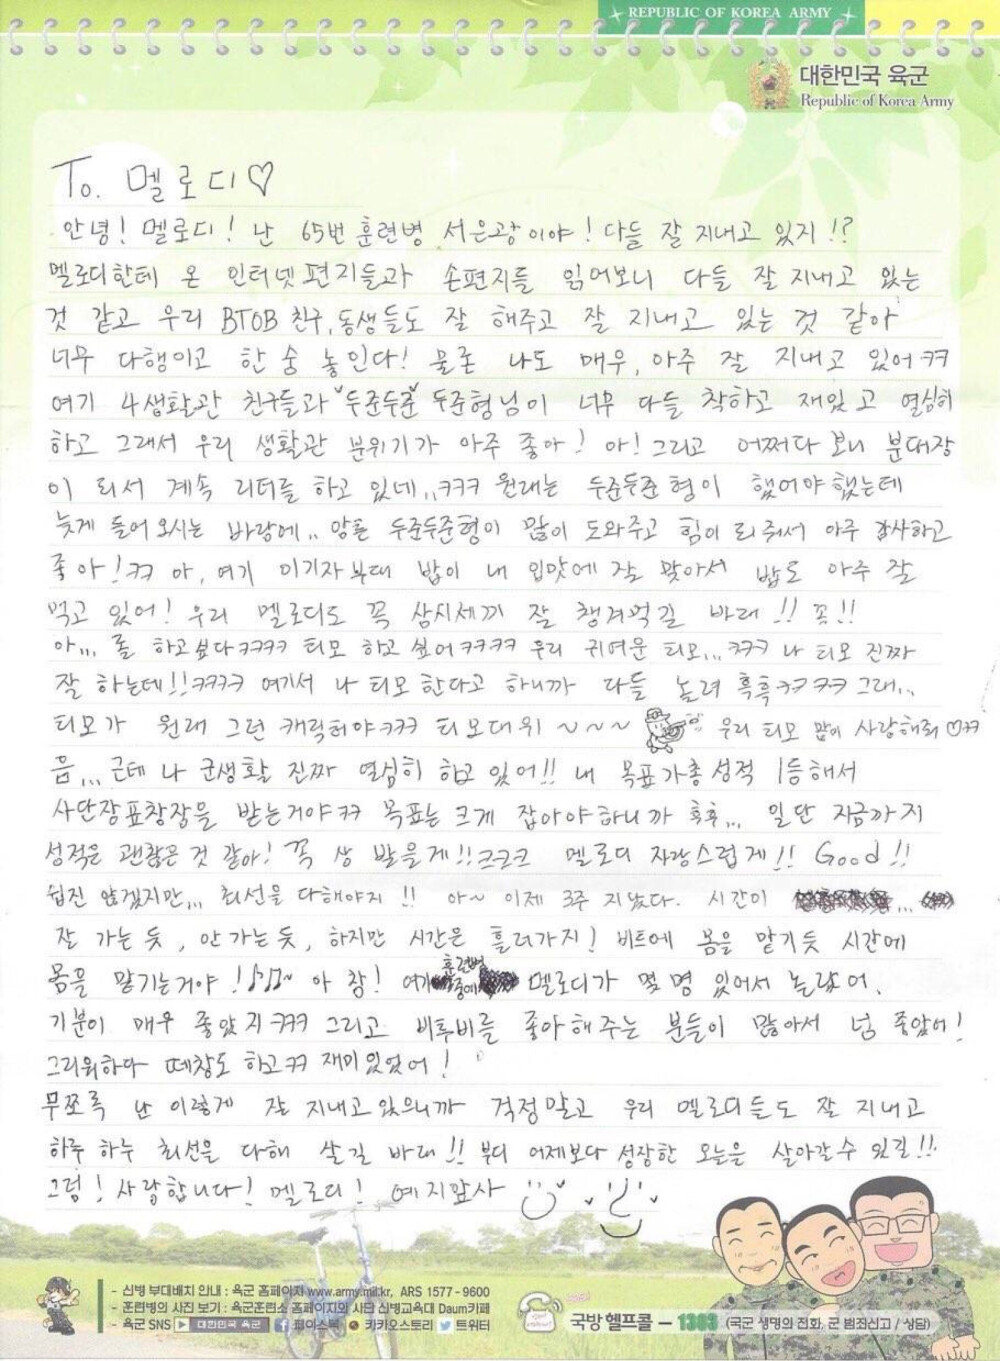 REPUBLIC OF KOREA ARMY
대한민국 육군
Republic of Korea Army
To. 멜로디♡
안녕! 멜로디! 난 65번 훈련병 서은광이야! 다들 잘 지내고 있지!?
멜로디한테 온 인터넷편지들과 손편지를 읽어보니 다들 잘 지내고 있는
것 같고 우리 BTOB 친구, 동생들도 잘 해주고 잘 지내고 있는 것 같아
너무 다행이고 한 숨 놓인다! 물론 나도 매우, 아주 잘 지내고 있어 ㅋㅋ
여기 4생활관 친구들과 "두준두준" 두준형님이 너무 다들 착하고 재밌고 열심히
하고 그래서 우리 생활관 분위기가 아주 좋아! 아! 그리고 어쩌다 보니 분대장
이 되서 계속 리더를 하고 있네,, ㅋㅋㅋ 원래는 두준두준 형이 했어야 했는데
늦게 들어오시는 바람에.. 암튼 두준두준형이 많이 도와주고 힘이 되줘서 아주 감사하고
좋아! ㅋㅋ 아, 여기 이기자부대 밥이 내 입맛에 잘 맞아서 밥도 아주 잘
먹고 있어! 우리 멜로디도 꼭 삼시세끼 잘 챙겨먹길 바래!! 꼭!!
아... 롤 하고싶다 ㅋㅋㅋㅋ 티모 하고 싶어 ㅋㅋㅋㅋ 우리 귀여운 티모... ㅋㅋㅋ 나 티모 진짜
잘 하는데!! ㅋㅋㅋㅋ 여기서 나 티모 한다고 하니까 다들 놀려 흑흑 ㅋㅋㅋㅋ 그래...
티모가 원래 그런 캐릭터야 ㅋㅋㅋ 티모대위 ~~~ 우리 티모 많이 사랑해줘 ♡ㅋㅋ
음... 근데 나 군생활 진짜 열심히 하고 있어!! 내 목표가 총 성적 1등해서
사단장표창장을 받는거야 ㅋㅋ 목표는 크게 잡아야하니까 후후... 일단 지금까지
성적은 괜찮은 것 같아! 꼭 상 받을게!! ㅋㅋㅋ 멜로디 자랑스럽게!! Good!!
쉽진 않겠지만... 최선을 다해야지!! 아~ 이제 3주 지났다. 시간이 ...
잘 가는 듯, 안 가는 듯, 하지만 시간은 흘러가지! 비트에 몸을 맡기듯 시간에
몸을 맡기는거야! ♪♫~ 아 참! 여기 훈련병 중에 멜로디가 몇 명 있어서 놀랐어.
기분이 매우 좋았지 ㅋㅋㅋ 그리고 비투비를 좋아해주는 분들이 많아서 넘 좋았어!
그리워하다 떼창도 하고 ㅋㅋ 재미있었어!
무쪼록 난 이렇게 잘 지내고 있으니까 걱정말고 우리 멜로디들도 잘 지내고
하루 하루 최선을 다해 살길 바래!! 부디 어제보다 성장한 오늘을 살아갈 수 있길!!
그럼! 사랑합니다! 멜로디! 예지앞사
- 신병 부대배치 안내 : 육군 홈페이지 www.army.mil.kr, ARS 1577-9600
- 훈련병의 사진 보기 : 육군훈련소 홈페이지와 사단 신병교육대 Daum카페
- 육군 SNS ▶ 대한민국 육군 f 페이스북 카카오스토리 트위터
국방헬프콜 – 1303 (국군 생명의 전화, 군 범죄신고 / 상담)